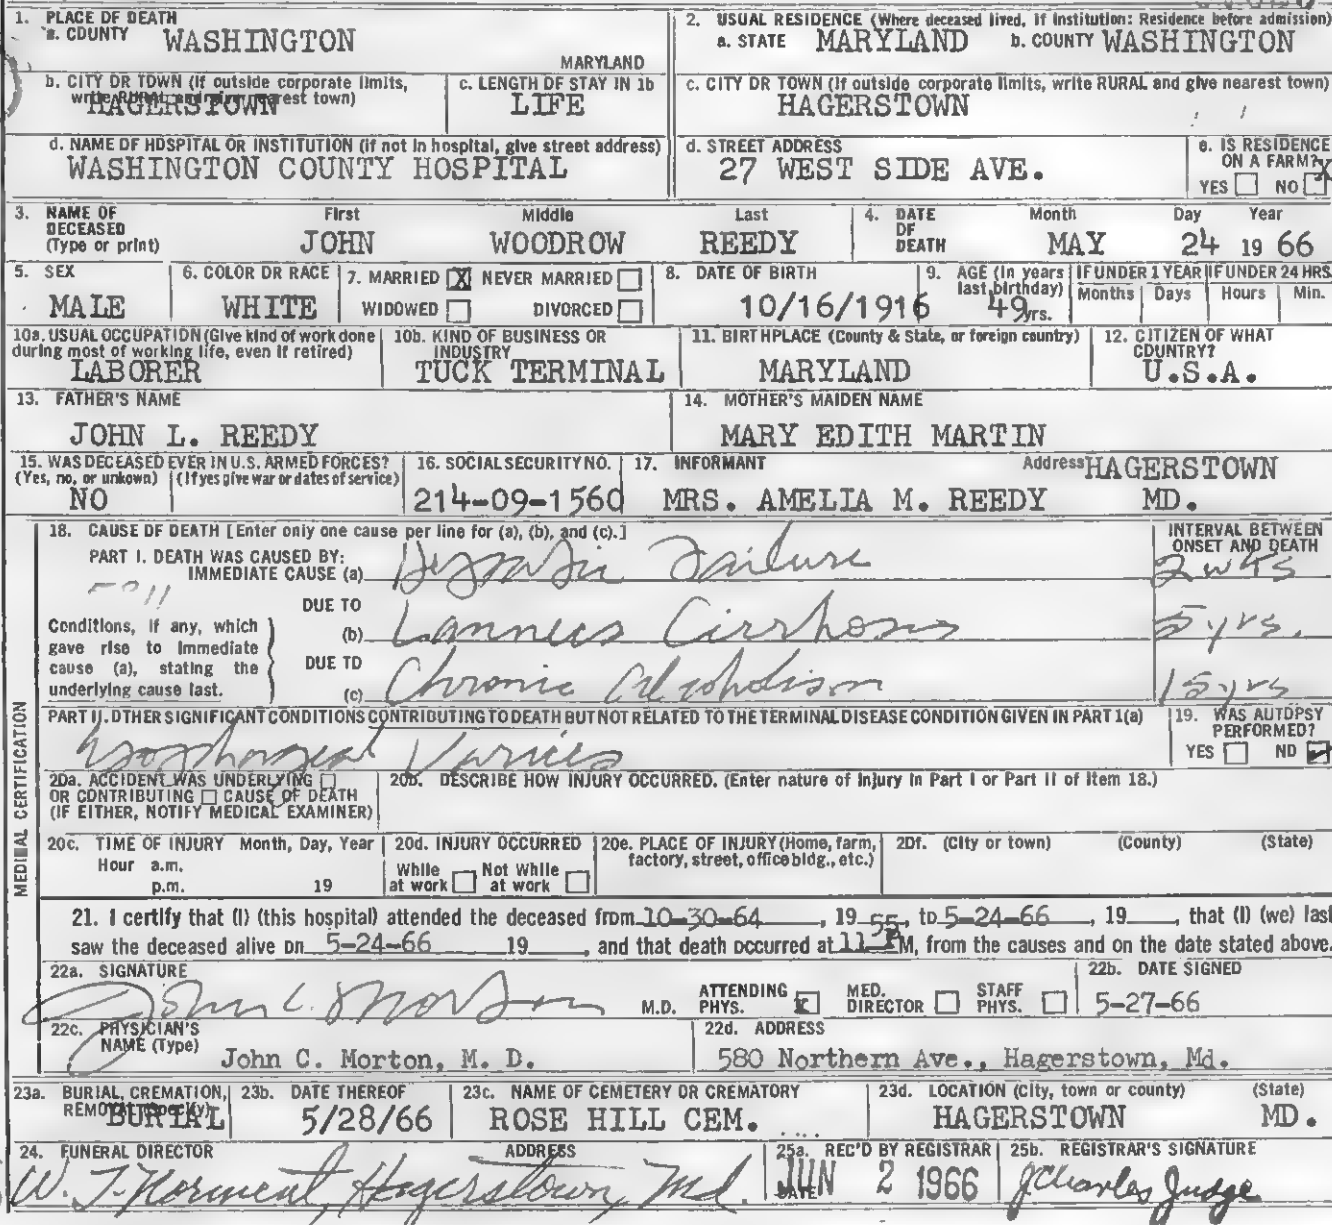 1. PLACE OF DEATH
a. COUNTY WASHINGTON
MARYLAND
2. USUAL RESIDENCE (Where deceased lived, If Institution: Residence before admission)
a. STATE MARYLAND b. COUNTY WASHINGTON
b. CITY OR TOWN (If outside corporate limits, write RURAL and give nearest town)
HAGERSTOWN
c. LENGTH OF STAY IN 1b
LIFE
c. CITY OR TOWN (If outside corporate limits, write RURAL and give nearest town)
HAGERSTOWN
d. NAME OF HOSPITAL OR INSTITUTION (If not in hospital, give street address)
WASHINGTON COUNTY HOSPITAL
d. STREET ADDRESS
27 WEST SIDE AVE.
e. IS RESIDENCE
ON A FARM?
YES NO X
3. NAME OF
DECEASED
(Type or print)
First Middle Last
JOHN WOODROW REEDY
4. DATE
OF
DEATH
Month Day Year
MAY 24 19 66
5. SEX
MALE
6. COLOR OR RACE
WHITE
7. MARRIED X NEVER MARRIED
WIDOWED DIVORCED
8. DATE OF BIRTH
10/16/1916
9. AGE (In years
last birthday)
49 yrs.
IF UNDER 1 YEAR
Months Days
IF UNDER 24 HRS
Hours Min.
10a. USUAL OCCUPATION (Give kind of work done
during most of working life, even if retired)
LABORER
10b. KIND OF BUSINESS OR
INDUSTRY
TUCK TERMINAL
11. BIRTHPLACE (County & State, or foreign country)
MARYLAND
12. CITIZEN OF WHAT
COUNTRY?
U.S.A.
13. FATHER'S NAME
JOHN L. REEDY
14. MOTHER'S MAIDEN NAME
MARY EDITH MARTIN
15. WAS DECEASED EVER IN U.S. ARMED FORCES?
(Yes, no, or unkown) (If yes give war or dates of service)
NO
16. SOCIAL SECURITY NO.
214-09-1560
17. INFORMANT Address
MRS. AMELIA M. REEDY HAGERSTOWN
MD.
MEDICAL CERTIFICATION
18. CAUSE OF DEATH [Enter only one cause per line for (a), (b), and (c).]
INTERVAL BETWEEN
ONSET AND DEATH
PART I. DEATH WAS CAUSED BY:
IMMEDIATE CAUSE (a) Hepatic Failure 2 wks
DUE TO
(b) Lannecs Cirrhosis 5 yrs.
Conditions, if any, which
gave rise to immediate
cause (a), stating the
underlying cause last.
DUE TO
(c) Chronic Alcoholism 15 yrs
PART II. OTHER SIGNIFICANT CONDITIONS CONTRIBUTING TO DEATH BUT NOT RELATED TO THE TERMINAL DISEASE CONDITION GIVEN IN PART 1(a)
Esophageal Varices
19. WAS AUTOPSY
PERFORMED?
YES NO
20a. ACCIDENT WAS UNDERLYING
OR CONTRIBUTING CAUSE OF DEATH
(IF EITHER, NOTIFY MEDICAL EXAMINER)
20b. DESCRIBE HOW INJURY OCCURRED. (Enter nature of Injury in Part I or Part II of Item 18.)
20c. TIME OF INJURY Month, Day, Year
Hour a.m.
p.m. 19
20d. INJURY OCCURRED
While at work Not While at work
20e. PLACE OF INJURY (Home, farm,
factory, street, office bldg., etc.)
20f. (City or town) (County) (State)
21. I certify that (I) (this hospital) attended the deceased from 10-30-64, 19 55, to 5-24-66, 19 , that (I) (we) last
saw the deceased alive on 5-24-66 19 , and that death occurred at 11 PM, from the causes and on the date stated above.
22a. SIGNATURE
John C. Morton M.D.
ATTENDING
PHYS. X
MED.
DIRECTOR
STAFF
PHYS.
22b. DATE SIGNED
5-27-66
22c. PHYSICIAN'S
NAME (Type)
John C. Morton, M. D.
22d. ADDRESS
580 Northern Ave., Hagerstown, Md.
23a. BURIAL, CREMATION,
REMOVAL (Specify)
BURIAL
23b. DATE THEREOF
5/28/66
23c. NAME OF CEMETERY OR CREMATORY
ROSE HILL CEM.
23d. LOCATION (City, town or county) (State)
HAGERSTOWN MD.
24. FUNERAL DIRECTOR ADDRESS
W. J. Norment, Hagerstown, Md.
25a. REC'D BY REGISTRAR
DATE JUN 2 1966
25b. REGISTRAR'S SIGNATURE
J Charles Judge